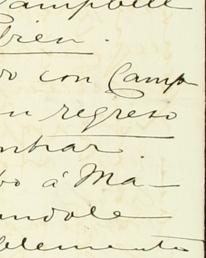 Campbell
bien.
do con Camp
su regreso
ntrar
bo á Ma-
andole
plementos